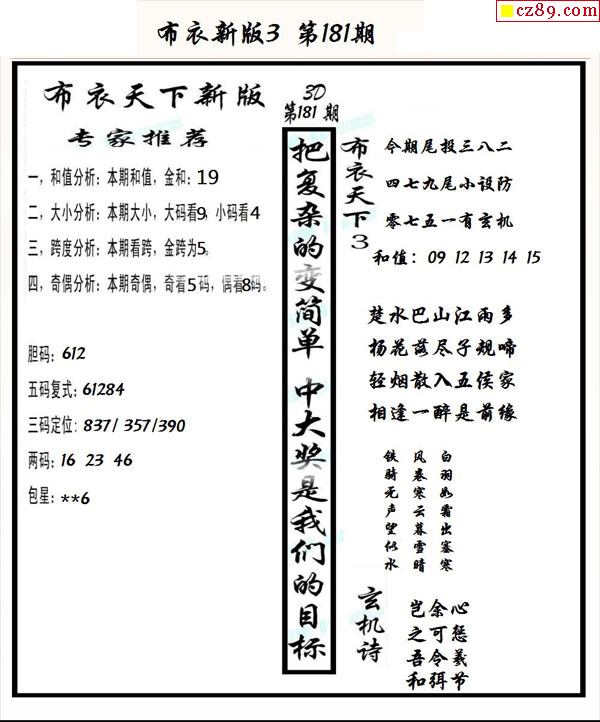 cz89.com
布衣新版3 第181期
布衣天下新版
专家推荐
一，和值分析：本期和值，金和：19
二，大小分析：本期大小，大码看9，小码看4
三，跨度分析：本期看跨，金跨为5。
四，奇偶分析：本期奇偶，奇看5码，偶看8码。
胆码：612
五码复式：61284
三码定位：837/ 357/390
两码：16 23 46
包星：**6
3D
第181期
把复杂的变简单 中大奖是我们的目标
布衣天下3
今期尾投三八二
四七九尾小设防
零七五一有玄机
和值：09 12 13 14 15
楚水巴山江雨多
杨花落尽子规啼
轻烟散入五侯家
相逢一醉是前缘
白羽如霜出塞寒
风卷寒云暮雪晴
铁骑无声望似水
玄机诗
岂余心
之可惩
吾令羲
和弭节